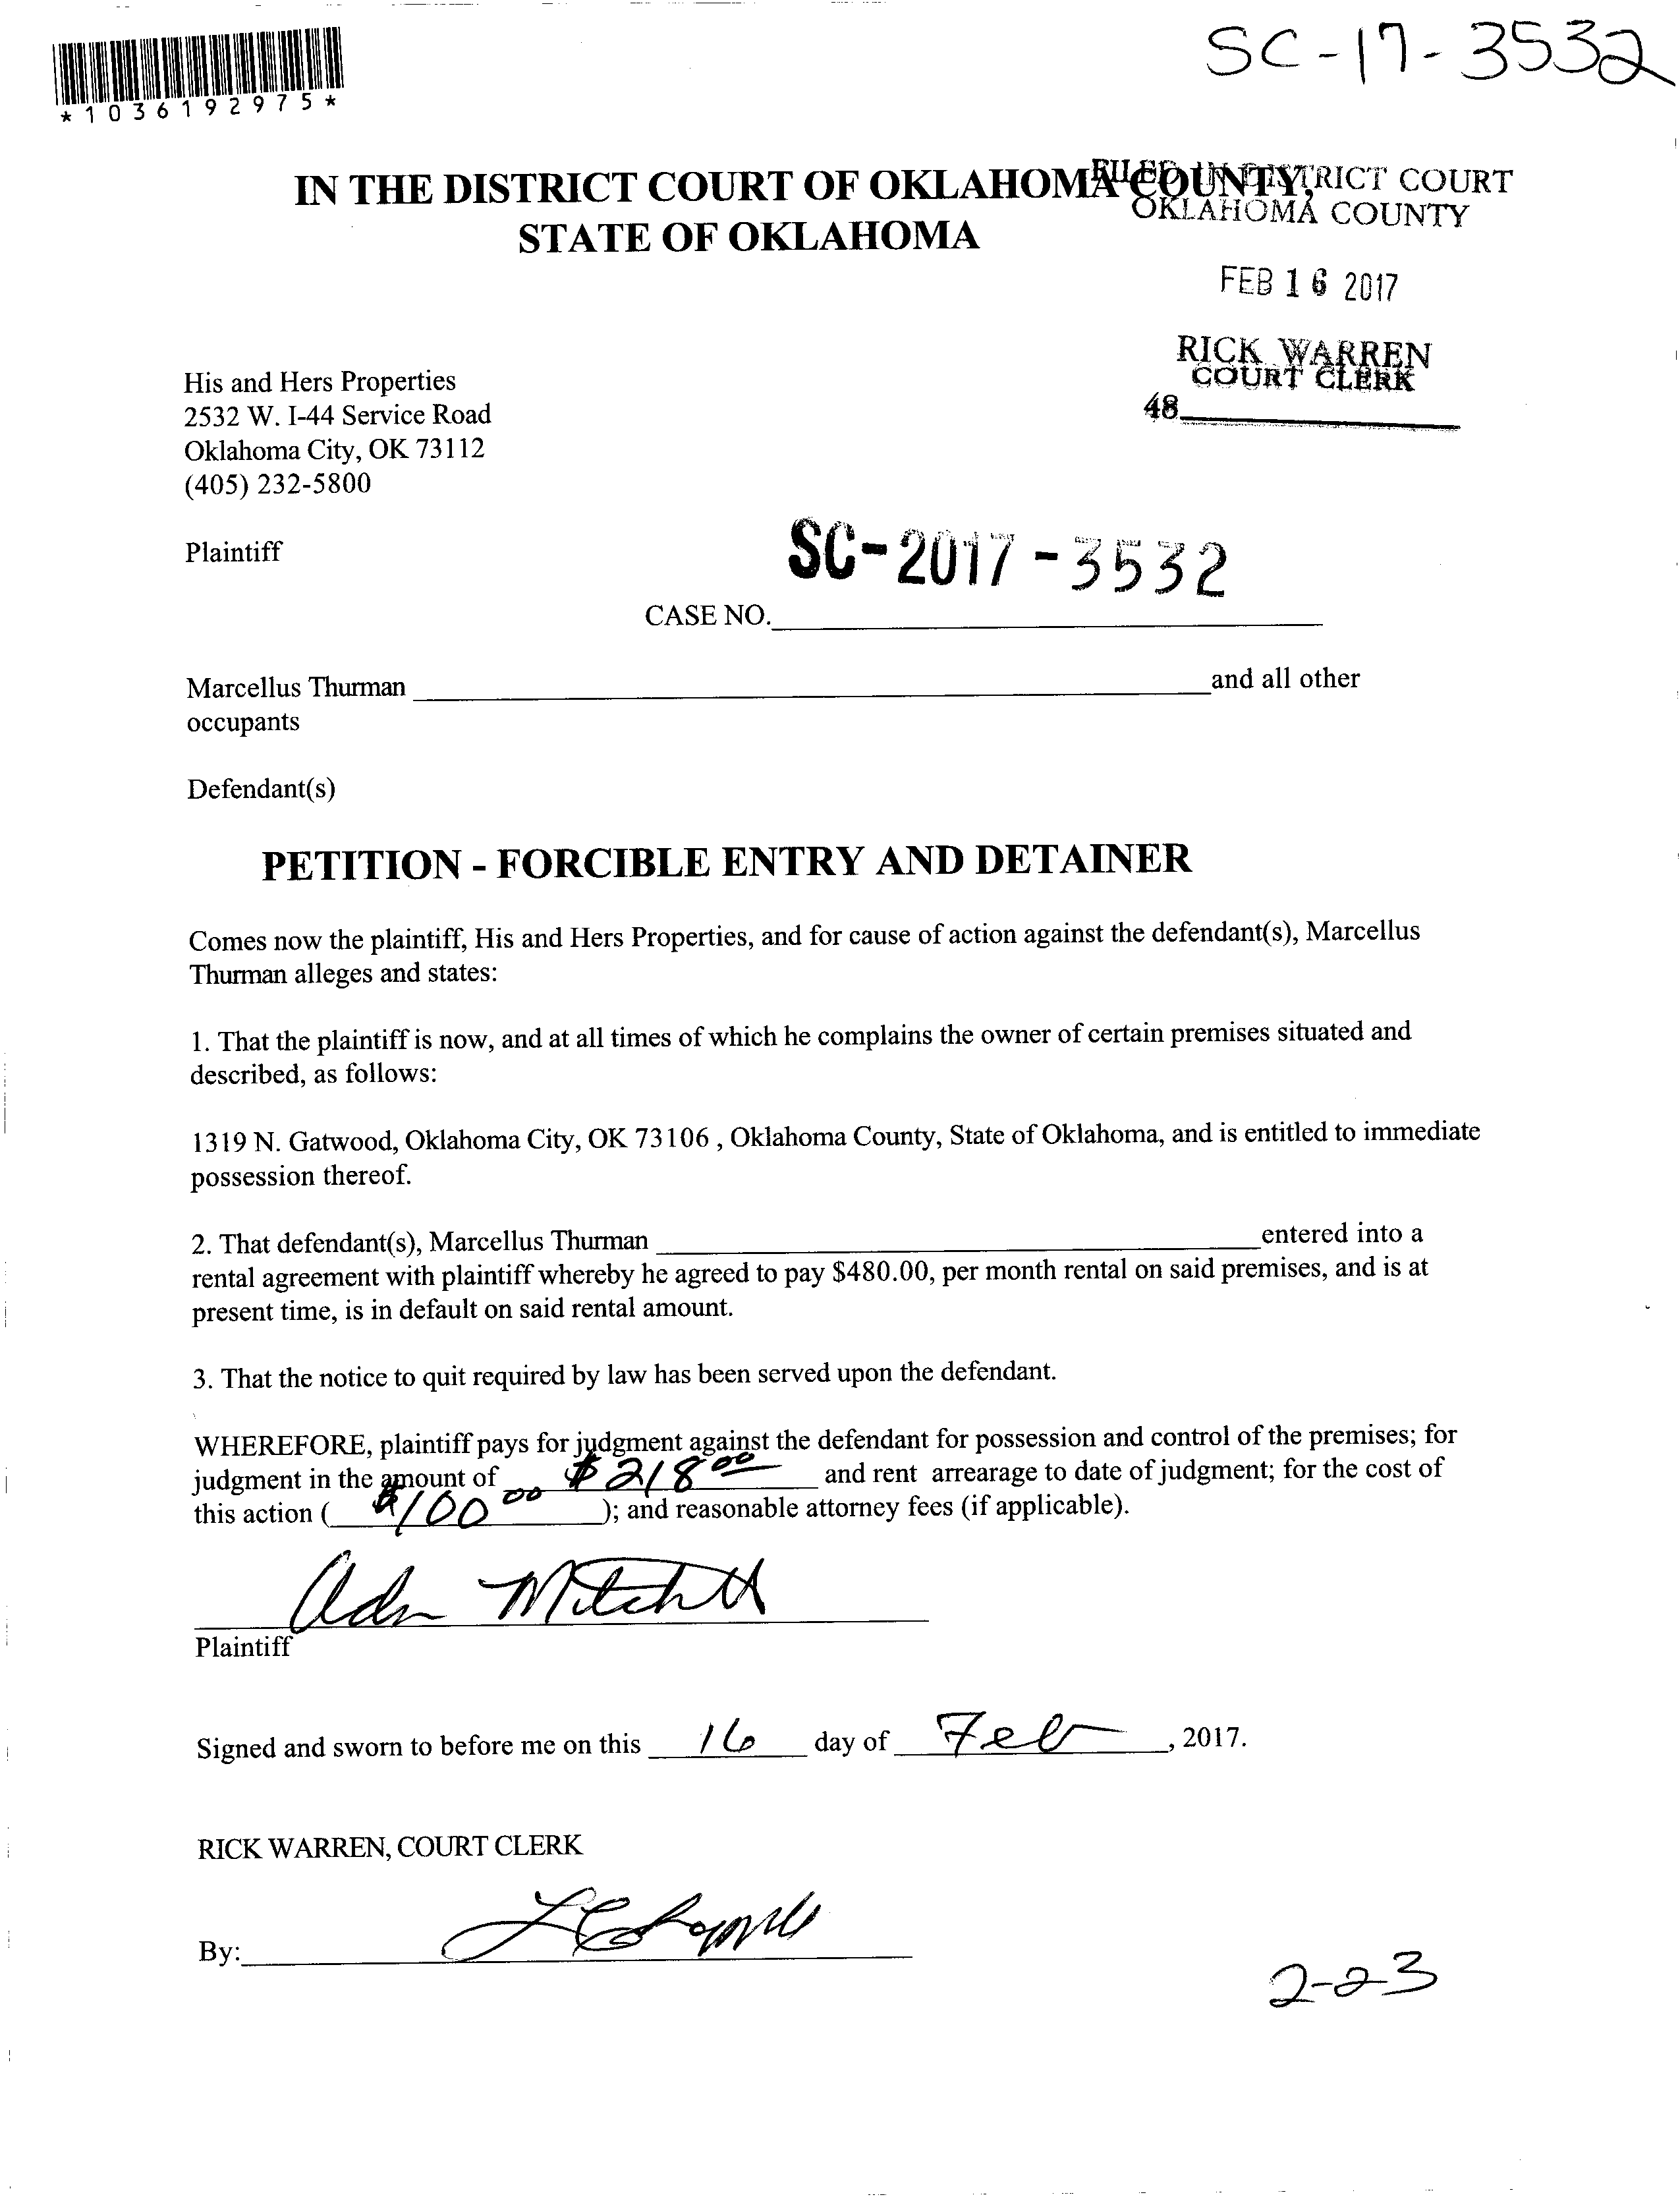 SC-17-3532
*1036192975*
IN THE DISTRICT COURT OF OKLAHOMA COUNTY,
STATE OF OKLAHOMA
FILED IN DISTRICT COURT
OKLAHOMA COUNTY
FEB 16 2017
RICK WARREN
COURT CLERK
48
His and Hers Properties
2532 W. I-44 Service Road
Oklahoma City, OK 73112
(405) 232-5800
Plaintiff
SC-2017-3532
CASE NO.
Marcellus Thurman and all other
occupants
Defendant(s)
PETITION - FORCIBLE ENTRY AND DETAINER
Comes now the plaintiff, His and Hers Properties, and for cause of action against the defendant(s), Marcellus
Thurman alleges and states:
1. That the plaintiff is now, and at all times of which he complains the owner of certain premises situated and
described, as follows:
1319 N. Gatwood, Oklahoma City, OK 73106 , Oklahoma County, State of Oklahoma, and is entitled to immediate
possession thereof.
2. That defendant(s), Marcellus Thurman entered into a
rental agreement with plaintiff whereby he agreed to pay $480.00, per month rental on said premises, and is at
present time, is in default on said rental amount.
3. That the notice to quit required by law has been served upon the defendant.
WHEREFORE, plaintiff pays for judgment against the defendant for possession and control of the premises; for
judgment in the amount of $218 00 and rent arrearage to date of judgment; for the cost of
this action ( $100 00 ); and reasonable attorney fees (if applicable).
Mitchell
Plaintiff
Signed and sworn to before me on this 16 day of Feb , 2017.
RICK WARREN, COURT CLERK
By:
2-23